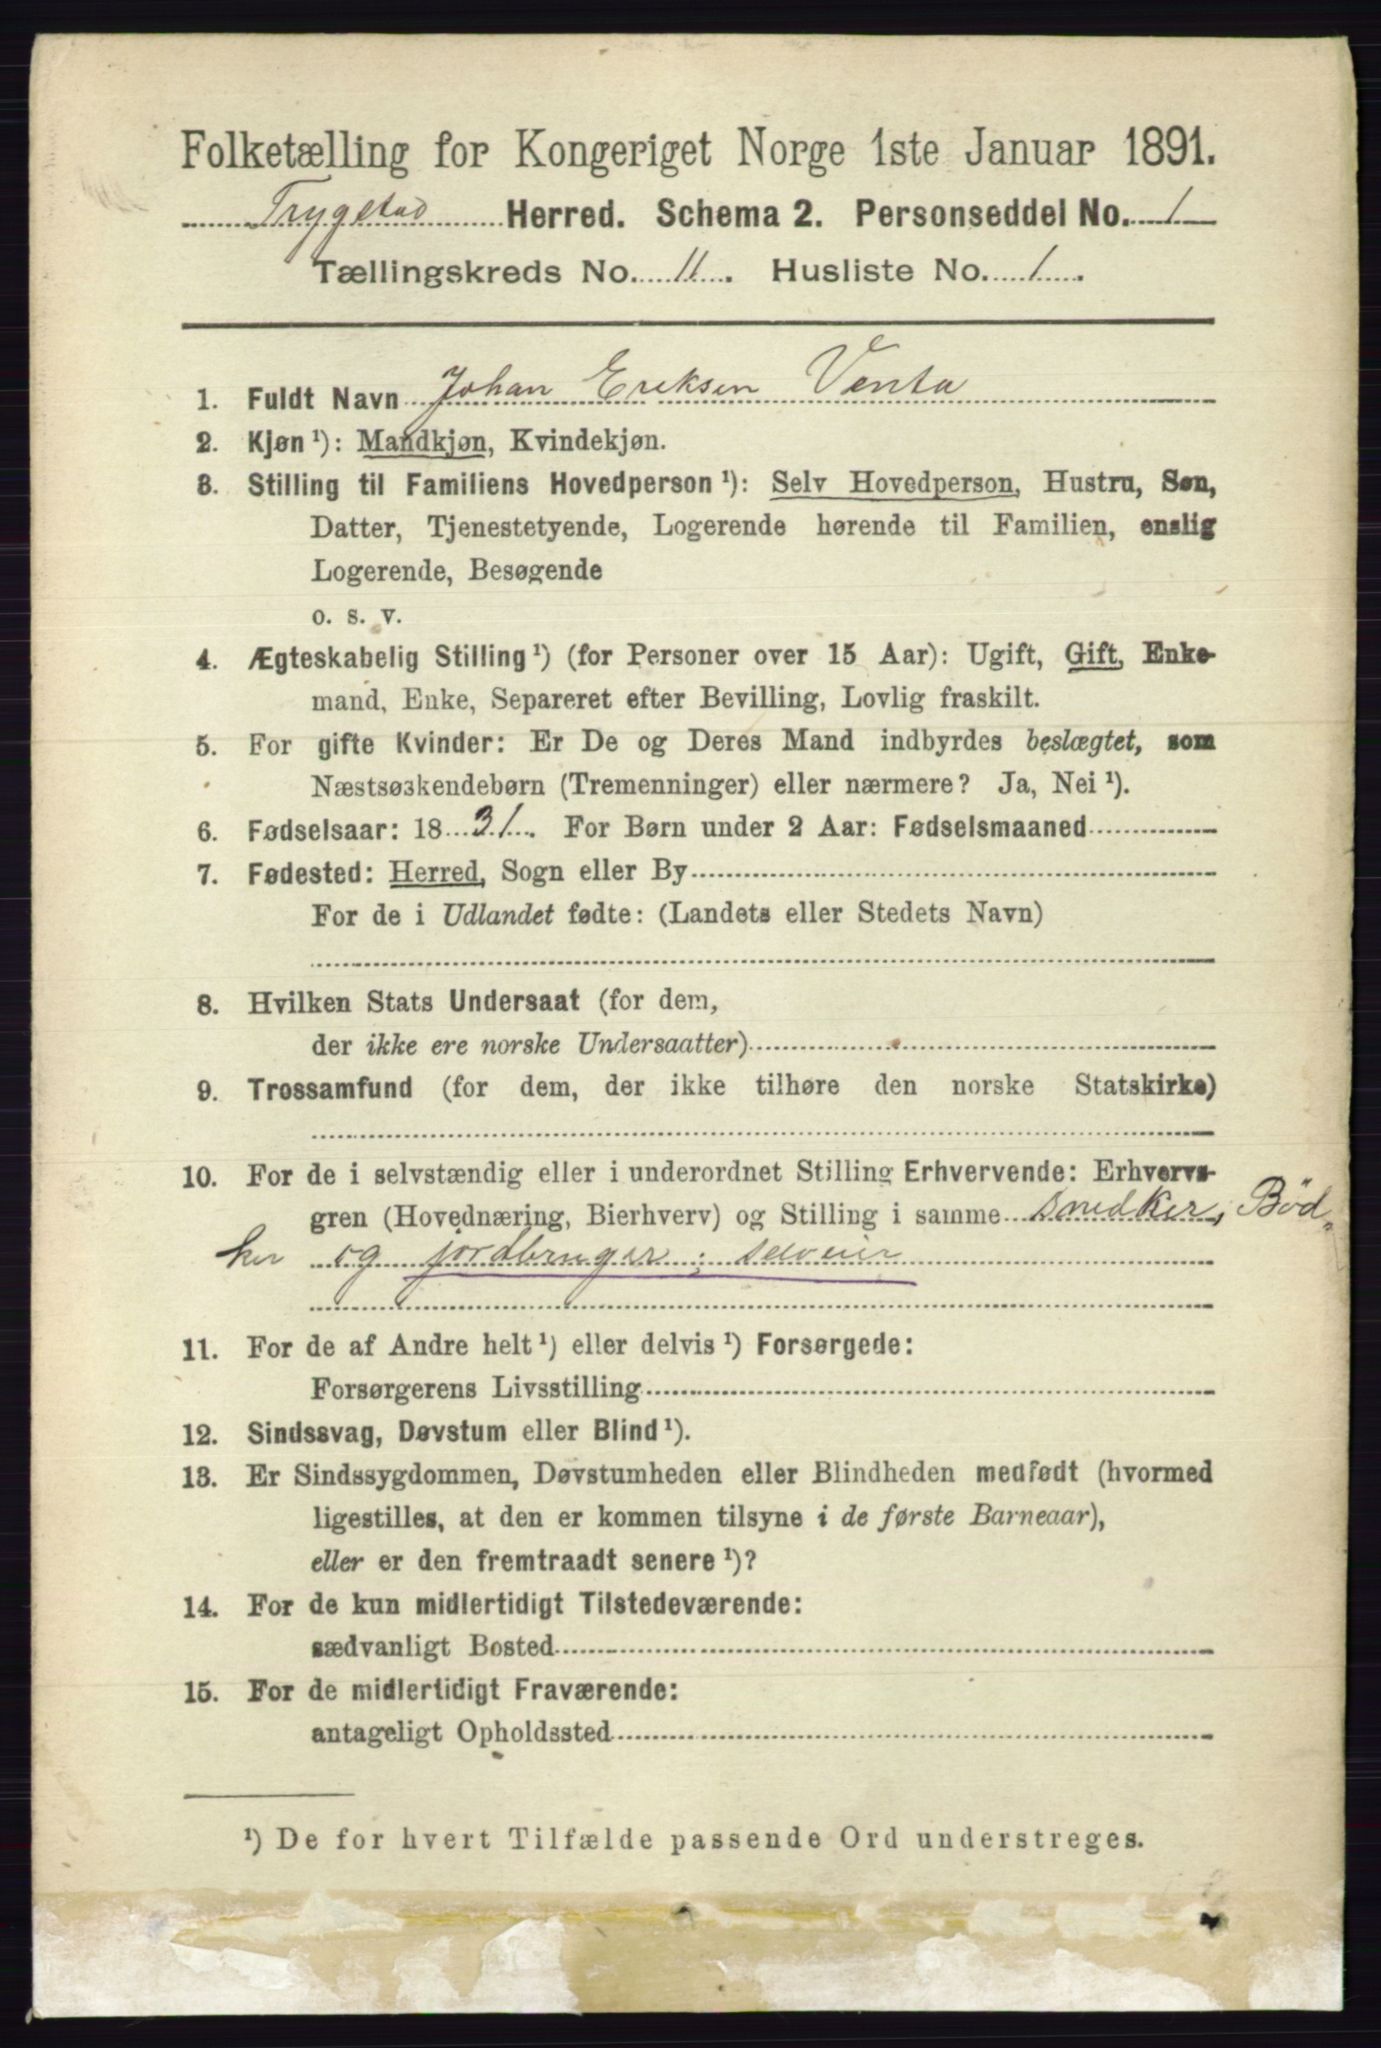 Folketælling for Kongeriget Norge 1ste Januar 1891.
Trygstad Herred. Schema 2. Personseddel No. 1
Tællingskreds No. 11. Husliste No. 1.
1. Fuldt Navn Johan Eriksen Venta
2. Kjøn ¹): Mandkjøn, Kvindekjøn.
3. Stilling til Familiens Hovedperson ¹): Selv Hovedperson, Hustru, Søn,
Datter, Tjenestetyende, Logerende hørende til Familien, enslig
Logerende, Besøgende
o. s. v.
4. Ægteskabelig Stilling ¹) (for Personer over 15 Aar): Ugift, Gift, Enke-
mand, Enke, Separeret efter Bevilling, Lovlig fraskilt.
5. For gifte Kvinder: Er De og Deres Mand indbyrdes beslægtet, som
Næstsøskendebørn (Tremenninger) eller nærmere? Ja, Nei ¹).
6. Fødselsaar: 1831. For Børn under 2 Aar: Fødselsmaaned
7. Fødested: Herred, Sogn eller By
For de i Udlandet fødte: (Landets eller Stedets Navn)
8. Hvilken Stats Undersaat (for dem,
der ikke ere norske Undersaatter)
9. Trossamfund (for dem, der ikke tilhøre den norske Statskirke)
10. For de i selvstændig eller i underordnet Stilling Erhvervende: Erhvervs-
gren (Hovednæring, Bierhverv) og Stilling i samme snedker, Bød-
ker og jordbruger; selveier
11. For de af Andre helt ¹) eller delvis ¹) Forsørgede:
Forsørgerens Livsstilling
12. Sindssvag, Døvstum eller Blind ¹).
13. Er Sindssygdommen, Døvstumheden eller Blindheden medfødt (hvormed
ligestilles, at den er kommen tilsyne i de første Barneaar),
eller er den fremtraadt senere ¹)?
14. For de kun midlertidigt Tilstedeværende:
sædvanligt Bosted
15. For de midlertidigt Fraværende:
antageligt Opholdssted
¹) De for hvert Tilfælde passende Ord understreges.